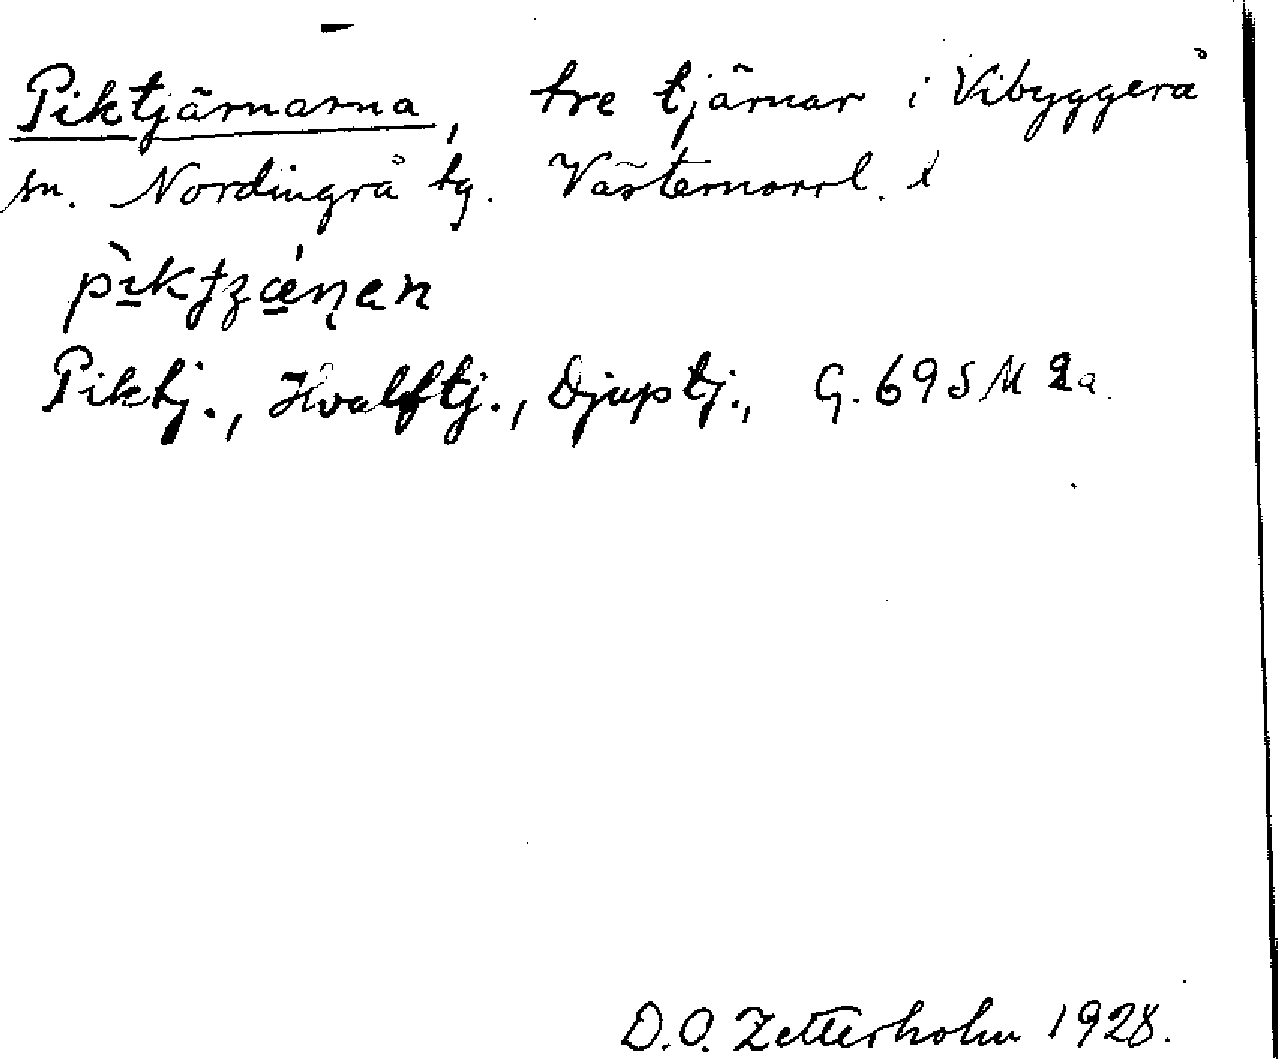 Piktjärnarna, tre tjärnar i Vibyggerå
sn. Nordingrå tg. Västernorrl. l
Piktj., Hvalftj., Djuptj., G. 69 SM 2a.
D.O. Zetterholm 1928.